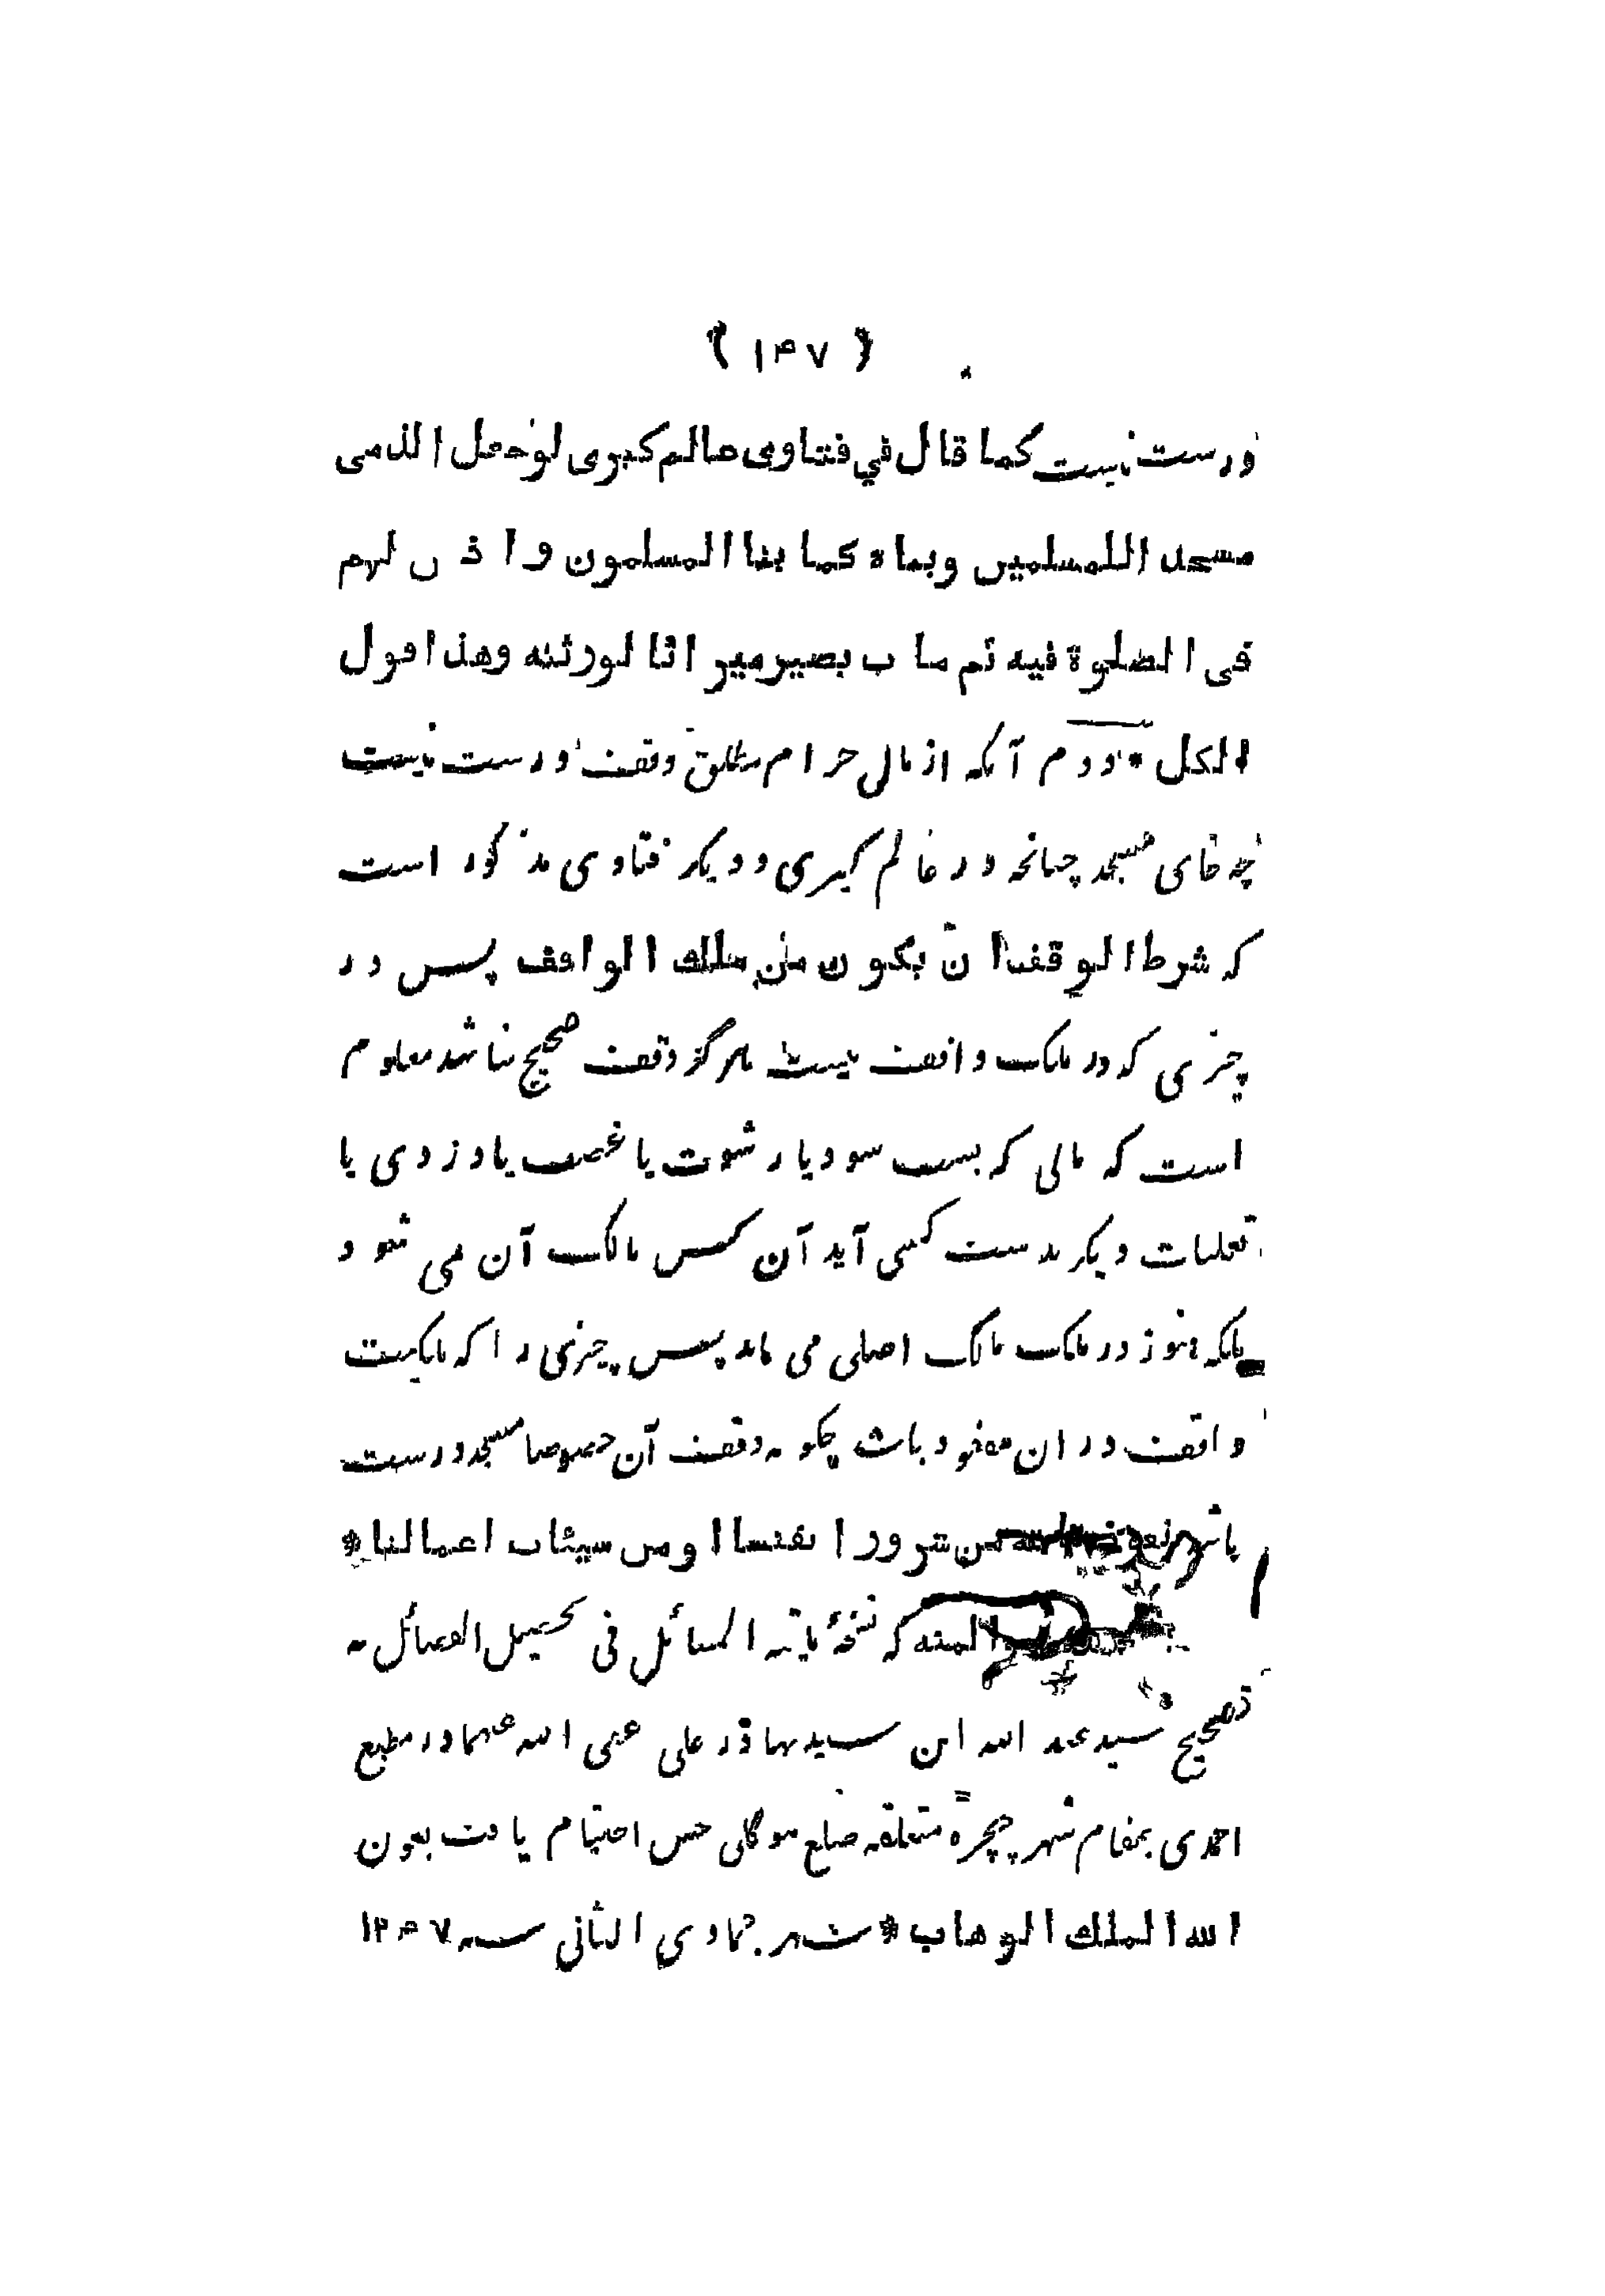 ( ۱۴۷ )
درست نیست کما قال في فتاوی عالم کیری لو جعل الذمی
مسجدا للمسلمین وبناه کما بنا المسلمون و اذن لهم
فی الصلوة فیه ثم مات یصیر میراثا لورثته وهذا قول
الکل * دوم آنکه از مالی حرام مطلق وقف درست نیست
چه جای مسجد چنانچه در عالم کیری و دیکر فتاوی مذکور است
که شرط الوقف ان یکون من ملک الواقف پس در
چیزی که در ملک واقف نیست هرگز وقف صحیح نباشد معلوم
است که مالی که بسبب سود یا رشوت یا غصب یا دزدی یا
تعلیات دیکر بدست کسی آید آن کس مالک آن می شود
بلکه هنوز در ملک مالک اصلی می ماند پس چیزی را که ملکیت
واقف در ان مفقود باشد چگونه وقف آن خصوصا مسجد درست
باشد نعوذ بالله من شرور انفسنا ومن سیئات اعمالنا *
والمنه که نسخهٔ مایته المسائل فی تحصیل الفضائل به
تصحیح سید عبد الله ابن سید بهادر علی عفی الله عنهما در مطبع
احمدی بمقام شهر چیچره متعلقه ضلع هوگلی حسن اختتام یافت بعون
الله الملک الوهاب * شهر جمادی الثانی سنه ۱۲۴۷